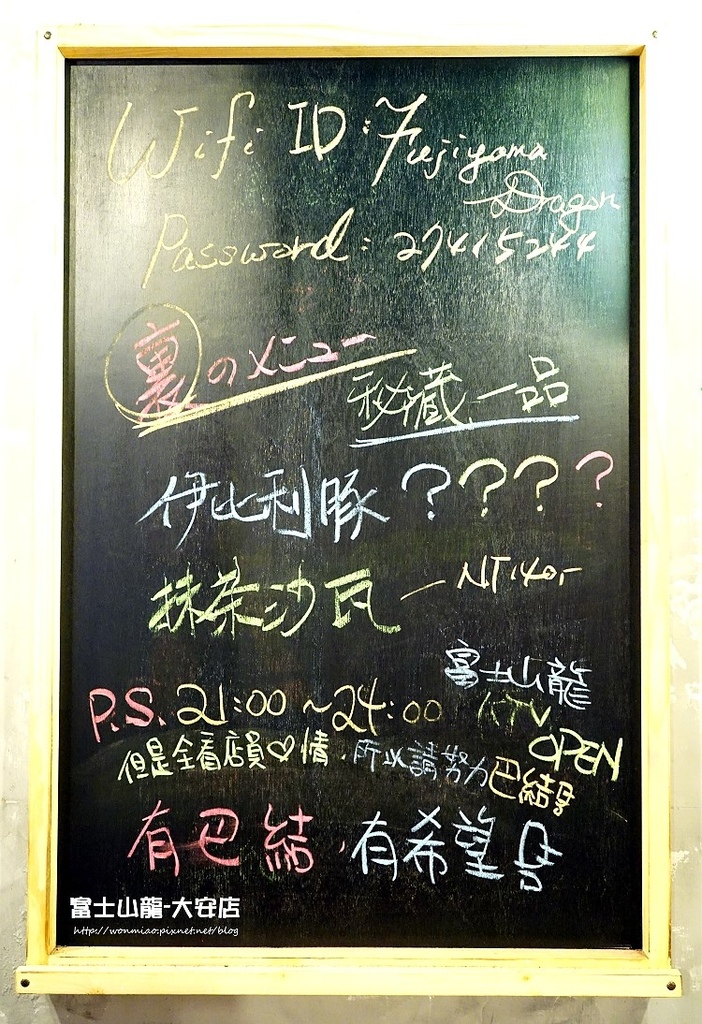 Wifi ID: Fujiyama
Dragon
Password: 27415244
裏のメニュー
秘藏一品
伊比利豚????
抹茶沙瓦 - NT140.-
富士山龍
P.S. 21:00~24:00 KTV
OPEN
但是全看店員♡情,所以請努力巴結
有巴結,有希望
富士山龍-大安店
http://wonmiao.pixnet.net/blog